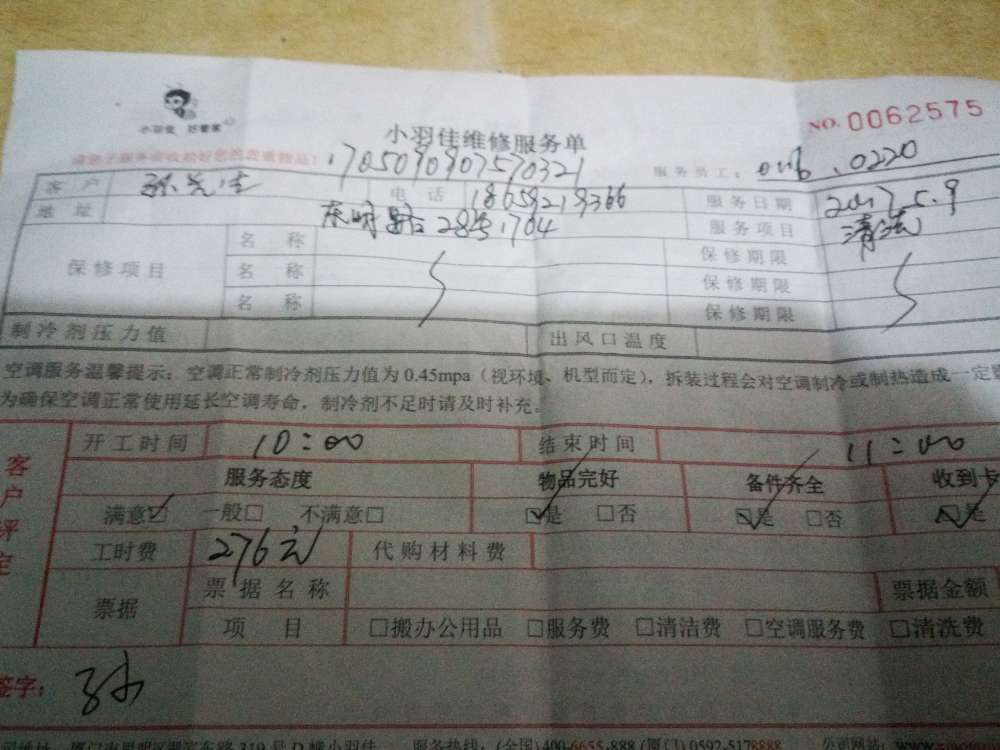 小羽佳 好管家
小羽佳维修服务单
NO. 0062575
1705090907570321
服务员工: 0220
客户 孙先生 电话 18659219366 服务日期 2017.5.9
地址 东明路28号1704 服务项目 清洗
保修项目 名称 保修期限
名称 保修期限
名称 保修期限
制冷剂压力值 出风口温度
空调服务温馨提示:空调正常制冷剂压力值为0.45mpa(视环境、机型而定),拆装过程会对空调制冷或制热造成一定
为确保空调正常使用延长空调寿命,制冷剂不足时请及时补充。
客户评定
开工时间 10:00 结束时间 11:00
服务态度 物品完好 备件齐全 收到卡
满意☑ 一般□ 不满意□ ☑是 □否 ☑是 □否 ☑是
工时费 276元 代购材料费
票据 票据名称 票据金额
项目 □搬办公用品 □服务费 □清洁费 □空调服务费 □清洗费
签字: 孙
319号D幢小羽佳 服务热线:(全国)400-6655-888(厦门)0592-5178888 公司网站: